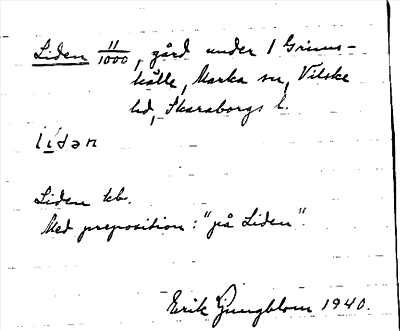 Liden 11/1000, gård under 1 Grims-
källe, Marka sn, Vilske
hd, Skaraborgs l.
li̠dən
Liden kb.
Med preposition: "på Liden".
Erik Ljungblom 1940.